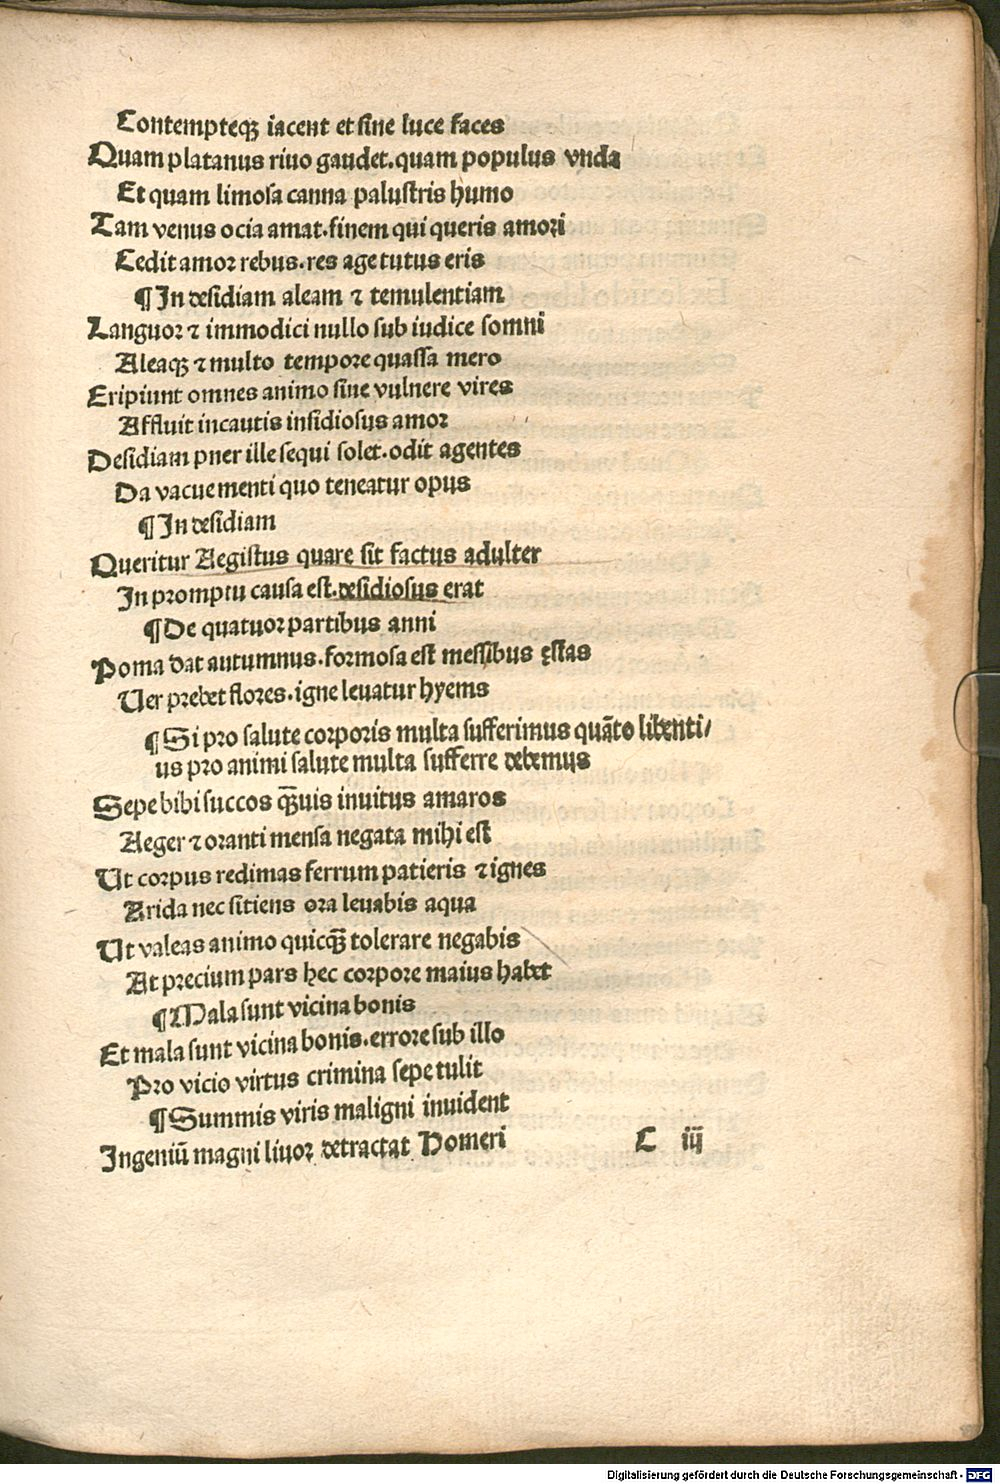 Contempteqꝫ iacent et sine luce faces
Quam platanus riuo gaudet. quam populus vnda
Et quam limosa canna palustris humo
Tam venus ocia amat. finem qui queris amori
Cedit amor rebus. res age tutus eris
¶ In desidiam aleam ⁊ temulentiam
Languor ⁊ immodici nullo sub iudice somni
Aleaqꝫ ⁊ multo tempore quassa mero
Eripiunt omnes animo sine vulnere vires
Affluit incautis insidiosus amor
Desidiam puer ille sequi solet. odit agentes
Da vacue menti quo teneatur opus
¶ In desidiam
Queritur Aegistus quare sit factus adulter
In promptu causa est. desidiosus erat
¶ De quatuor partibus anni
Poma dat autumnus. formosa est messibus ęstas
Uer prebet flores. igne leuatur hyems
¶ Si pro salute corporis multa sufferimus quāto libenti/
us pro animi salute multa sufferre debemus
Sepe bibi succos qᷓuis inuitus amaros
Aeger ⁊ oranti mensa negata mihi est
Ut corpus redimas ferrum patieris ⁊ ignes
Arida nec sitiens ora leuabis aqua
Ut valeas animo quicqᷓ tolerare negabis
At precium pars hec corpore maius habet
¶ Mala sunt vicina bonis
Et mala sunt vicina bonis. errore sub illo
Pro vicio virtus crimina sepe tulit
¶ Summis viris maligni inuident
Ingeniū magni liuor detractat Homeri
C iij
Digitalisierung gefördert durch die Deutsche Forschungsgemeinschaft - DFG